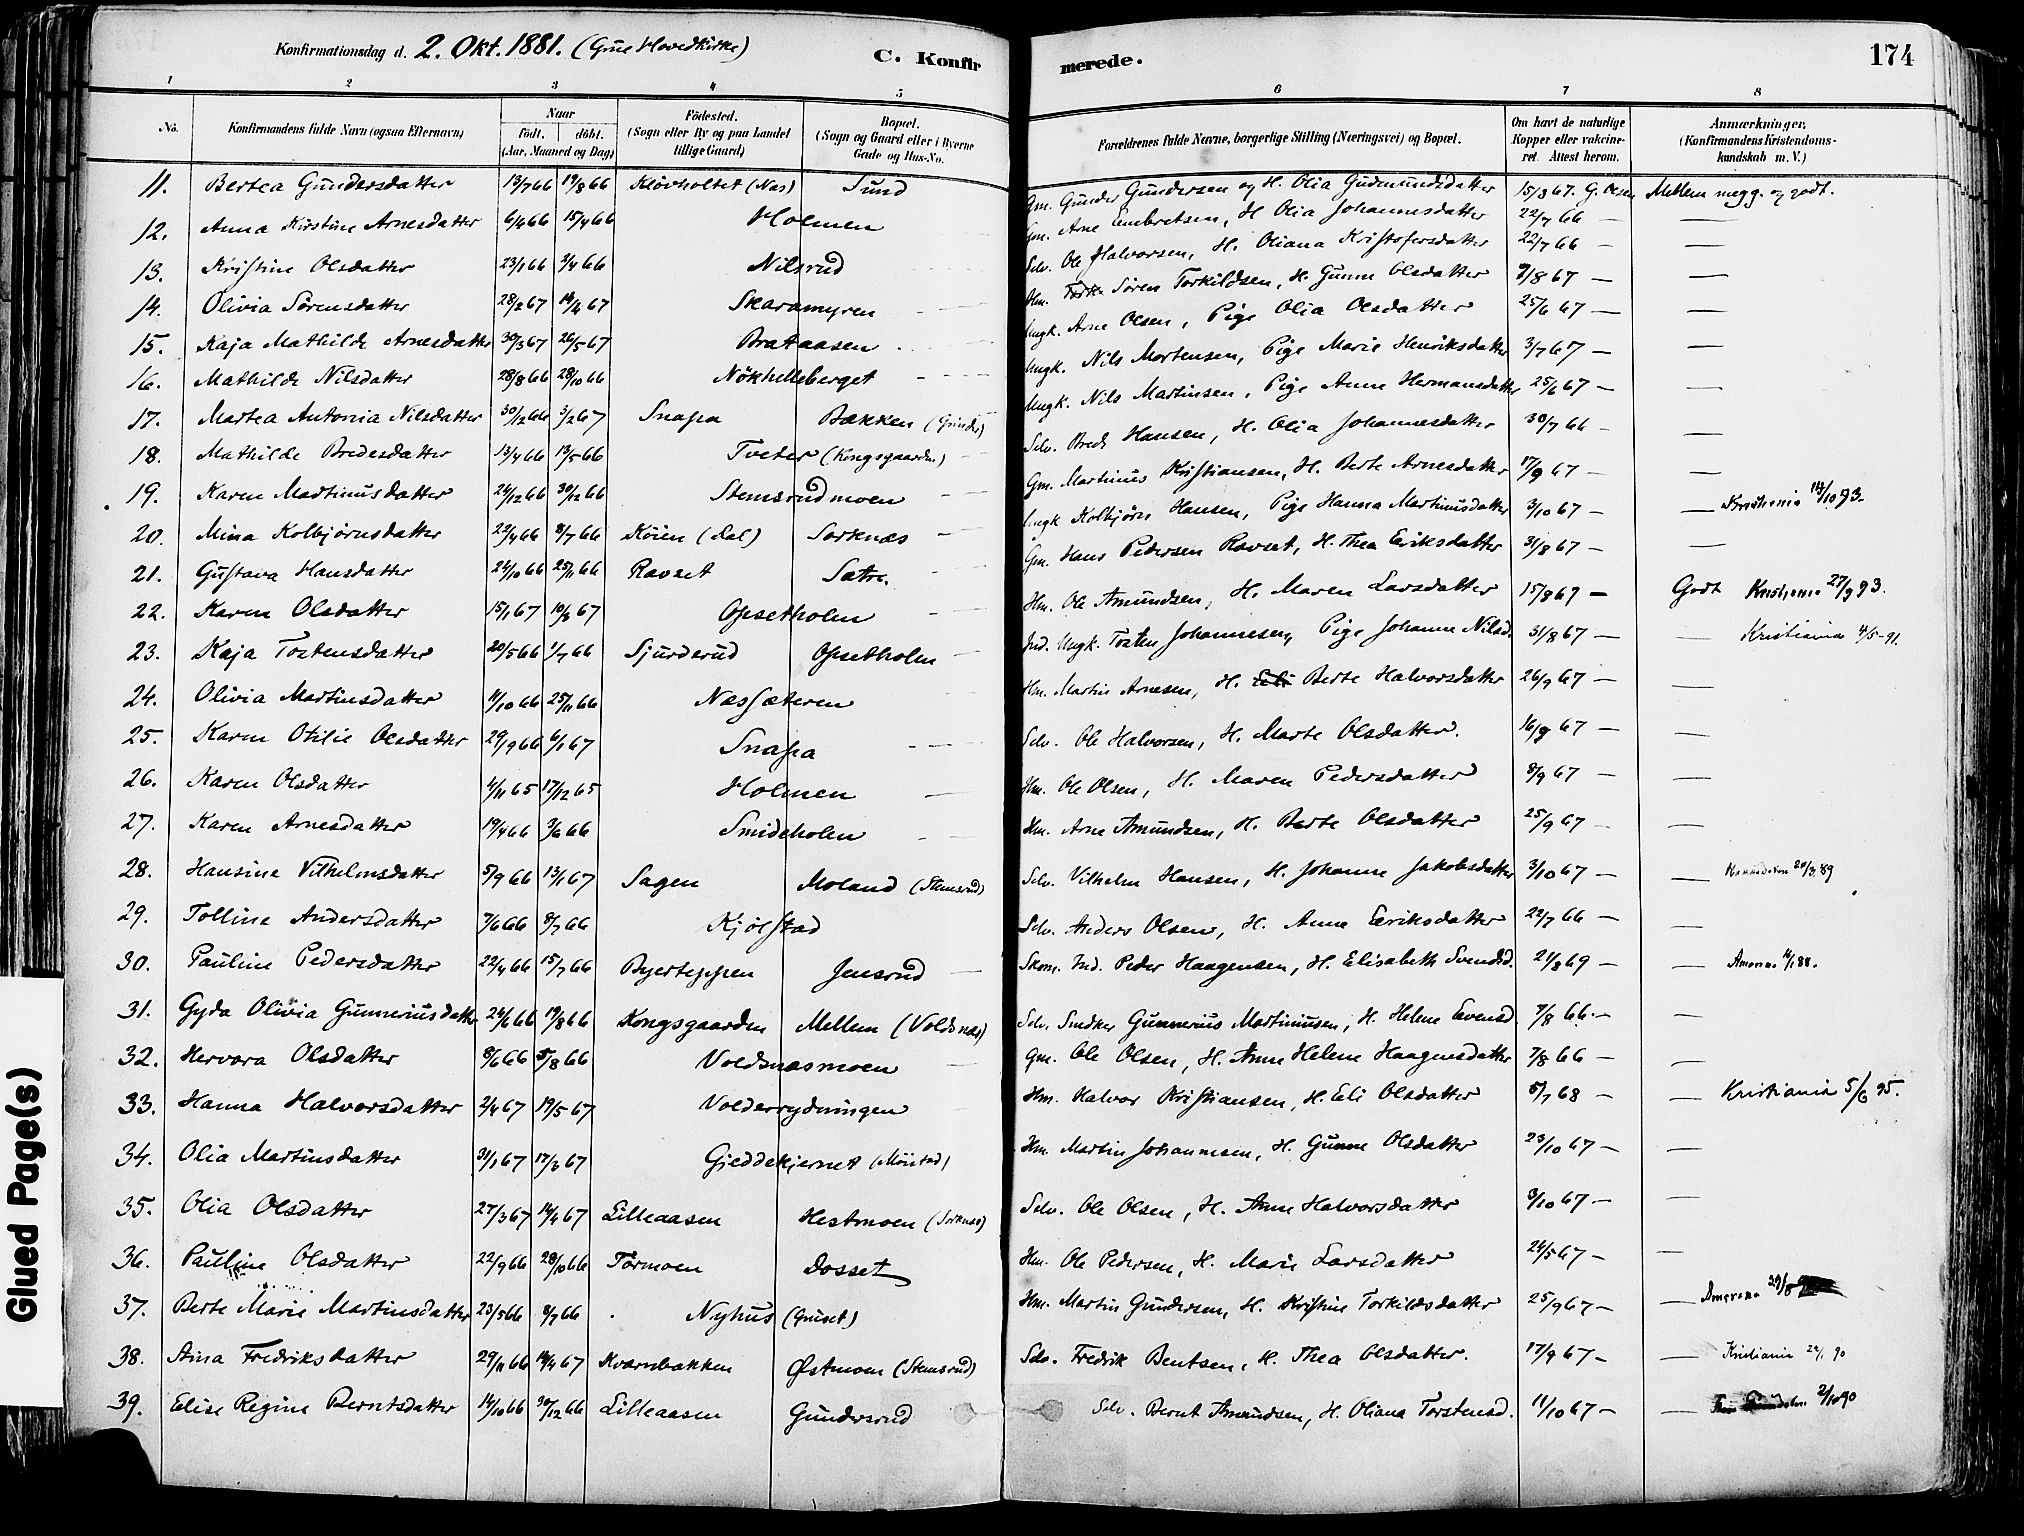 Konfirmationsdag d. 2. Okt. 1881. (Grue Hovedkirke) C. Konfir merede. 174
1 2 3 4 5 6 7 8
No. Konfirmandens fulde Navn (ogsaa Efternavn) Naar födt. döbt. (Aar, Maaned og Dag) Födested. (Sogn eller By og paa Landet tillige Gaard) Bopæl. (Sogn og Gaard eller i Byerne Gade og Hus-No. Forældrenes fulde Navne, borgerlige Stilling (Næringsvei) og Bopæl. Om havt de naturlige Kopper eller vakcineret. Attest herom. Anmærkninger. (Konfirmandens Kristendomskundskab m. V.)
11. Bertea Gundersdatter 13/7 66 19/8 66 Klövholtet (Næs) Sund Gm. Gunder Gundersen og H. Olia Gudmundsdatter 15/8 67. G. Olsen Mellem megg. og godt.
12. Anna Kirstine Arnesdatter 6/4 66 15/4 66 Holmen Gm. Arne Embretsen, H. Olia Johannesdatter 22/7 66 — —
13. Kristine Olsdatter 23/1 66 2/4 66 Nilsrud Selv. Ole Halvorsen, H. Oliana Kristofersdatter 22/7 66 — —
14. Olivia Sörensdatter 28/2 67 14/4 67 Skaramyren Hm. Sören Torkildsen, H. Gunne Olsdatter 7/8 67 — —
15. Kaja Mathilde Arnesdatter 30/3 67 26/5 67 Brataasen Ungk. Arne Olsen, Pige Olia Olsdatter 25/6 67 — —
16. Mathilde Nilsdatter 28/8 66 28/10 66 Nökhelleberget Ungk. Nils Mortensen, Pige Marie Henriksdatter 3/7 67 — —
17. Martea Antonia Nilsdatter 30/12 66 3/2 67 Snapa Bækken (Grinder) Ungk. Nils Martinsen, Pige Anne Hermansdatter 25/6 67 — —
18. Mathilde Bredesdatter 13/4 66 13/5 66 Tveter (Kongsgaarden) Selv. Brede Hansen, H. Olia Johannesdatter 30/7 66 — —
19. Karen Martinusdatter 24/12 66 30/12 66 Stemsrudmoen Gm. Martinus Kristiansen, H. Berte Arnesdatter 17/9 67 — —
20. Mina Kolbjörnsdatter 22/4 66 8/7 66 Köien (Dal) Sorknæs Ungk Kolbjörn Hansen, Pige Hanna Martinusdatter 3/10 67 — — Kristiania 14/10 93.
21. Gustava Hansdatter 24/10 66 25/11 66 Ravset Sætre Gm. Hans Pedersen Ravset, H. Thea Eriksdatter 31/8 67 — —
22. Karen Olsdatter 15/1 67 10/3 67 Opsetholen Hm. Ole Amundsen, H. Maren Larsdatter 15/8 67 — Godt Kristiania 27/9 93.
23. Kaja Tostensdatter 20/5 66 1/7 66 Sjurderud Opsetholen Ind. Ungk. Tosten Johannesen, Pige Johanne Nilsd. 31/8 67 — — Kristiania 4/5-91.
24. Olivia Martinsdatter 11/10 66 25/11 66 Næssæteren Hm. Martin Arnesen, H. Berte Halvorsdatter 26/9 67 — —
25. Karen Otilie Olsdatter 29/9 66 6/1 67 Snapa Selv. Ole Halvorsen, H. Marte Olsdatter. 16/9 67 — —
26. Karen Olsdatter 4/11 65 17/12 65 Holmen Hm. Ole Olsen, H. Maren Pedersdatter 8/9 67 — —
27. Karen Arnesdatter 19/4 66 3/6 66 Smideholen Hm. Arne Amundsen, H. Berte Olsdatter 25/9 67 — —
28. Hansine Vilhelmsdatter 5/9 66 13/1 67 Sagen Moland (Stemsrud) Selv. Vilhelm Hansen, H. Johanne Jakobsdatter 3/10 67 — —
29. Tolline Andersdatter 7/6 66 8/7 66 Kjölstad Selv. Anders Olsen, H. Anne Eriksdatter 22/7 66 — —
30. Pauline Pedersdatter 22/4 66 15/7 66 Byerteppen Jensrud Skom. Ind. Peder Haagensen, H. Elisabeth Svendsd. 21/8 69 — Amerika 16/1 88.
31. Gyda Olivia Gunneriusdatter 24/6 66 19/8 66 Kongsgaarden Mellem (Voldnæs) Selv. Snedker Gunnerius Martiniusen, H. Helene Evensd. 7/8 66. — —
32. Hervora Olsdatter 8/6 66 5/8 66 Voldsnæsmoen Gm. Ole Olsen, H. Anne Helene Haagensdatter 7/8 66 — —
33. Hanna Halvorsdatter 2/4 67 19/5 67 Volderrydningen Hm. Halvor Kristiansen, H. Eli Olsdatter 5/7 68 — — Kristiania 5/6 95.
34. Olia Martinsdatter 31/1 67 17/3 67 Gjeddekjernet (Möistad) Hm. Martin Johannesen, H. Gunne Olsdatter 23/10 67 — —
35. Olia Olsdatter 27/3 67 14/4 67 Lilleaasen Hestmoen (Sorknæs) Selv. Ole Olsen, H. Anne Halvorsdatter 3/10 67 — —
36. Pauline Olsdatter 22/9 66 28/10 66 Törmoen Dosset Hm. Ole Pedersen, H. Marie Larsdatter 24/5 67 — —
37. Berte Marie Martinsdatter 23/5 66 8/7 66 Nyhus (Gruset) Hm. Martin Gundersen, H. Kristine Torkildsdatter 25/9 67 — — Amerika 29/8
38. Stina Fredriksdatter 29/11 66 14/4 67 Kværnbakken Østmoen (Stemsrud) Selv. Fredrik Bentsen, H. Thea Olsdatter. 17/9 67 — — Kristiania 22/1 90
39. Elise Regine Berntsdatter 14/10 66 30/12 66 Lilleaasen Gundersrud Selv. Bernt Amundsen, H. Oliana Torstensd. 11/10 67 — — 2/10 90
Glued Page(s)